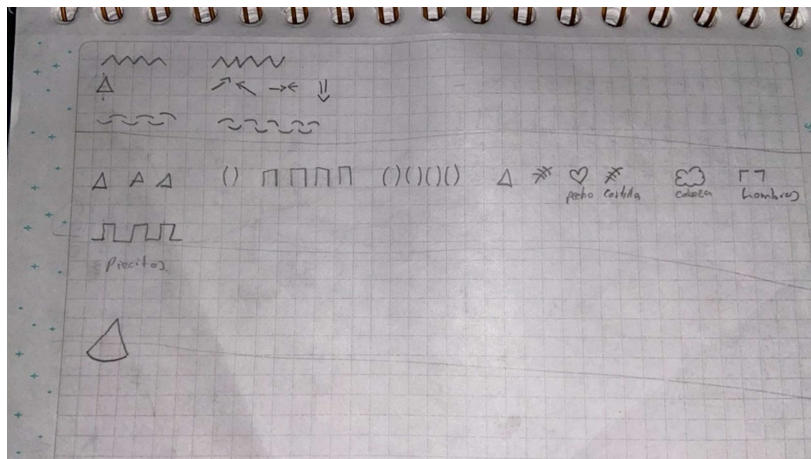 pecho costilla cabeza hombros
piecitos